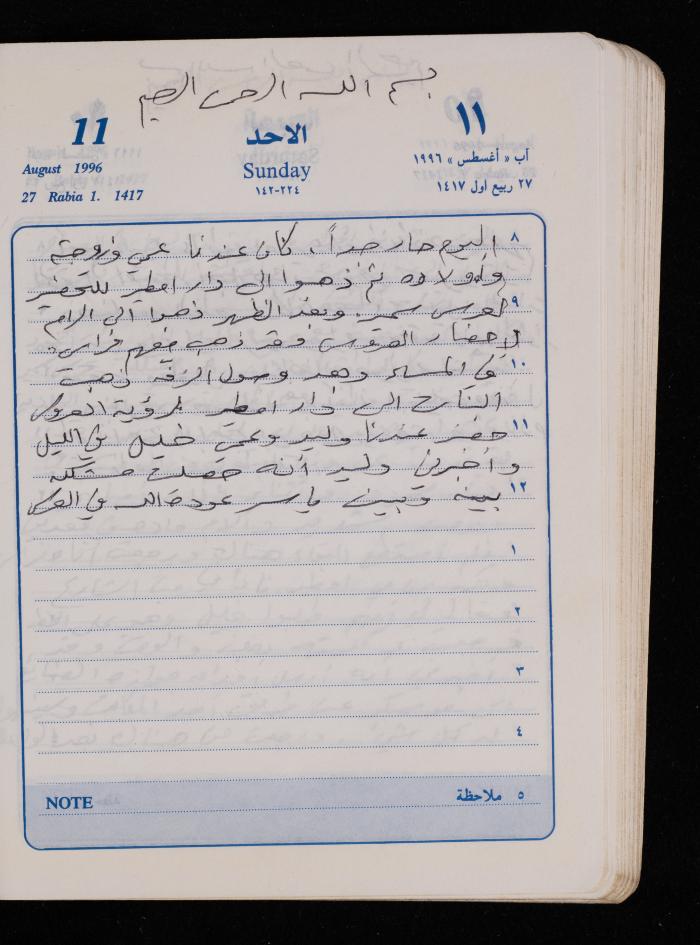 بسم الله الرحمن الرحيم
11 الاحد ١١
August 1996 Sunday آب « أغسطس » ١٩٩٦
27 Rabia 1. 1417 ١٤٢-٢٢٤ ٢٧ ربيع اول ١٤١٧
٨ اليوم حار جداً، كان عندنا عمي وزوجته
وأولاده ثم ذهبوا الى دار امطير للتحضير
٩ لعرس سمير. وبعد الظهر ذهبوا الى الرام
لإحضار العروس وقد ذهب معهم فراس.
١٠ في المساء وبعد وصول الزفة ذهبت
الى دار امطير لرؤية العروس
١١ حضر عندنا وليد وعمي خليل في الليل
وأخبرني وليد أنه حصلت مشكلة
١٢ بينه وبين ياسر عودة الله في العرس
١
٢
٣
٤
NOTE ٥ ملاحظة